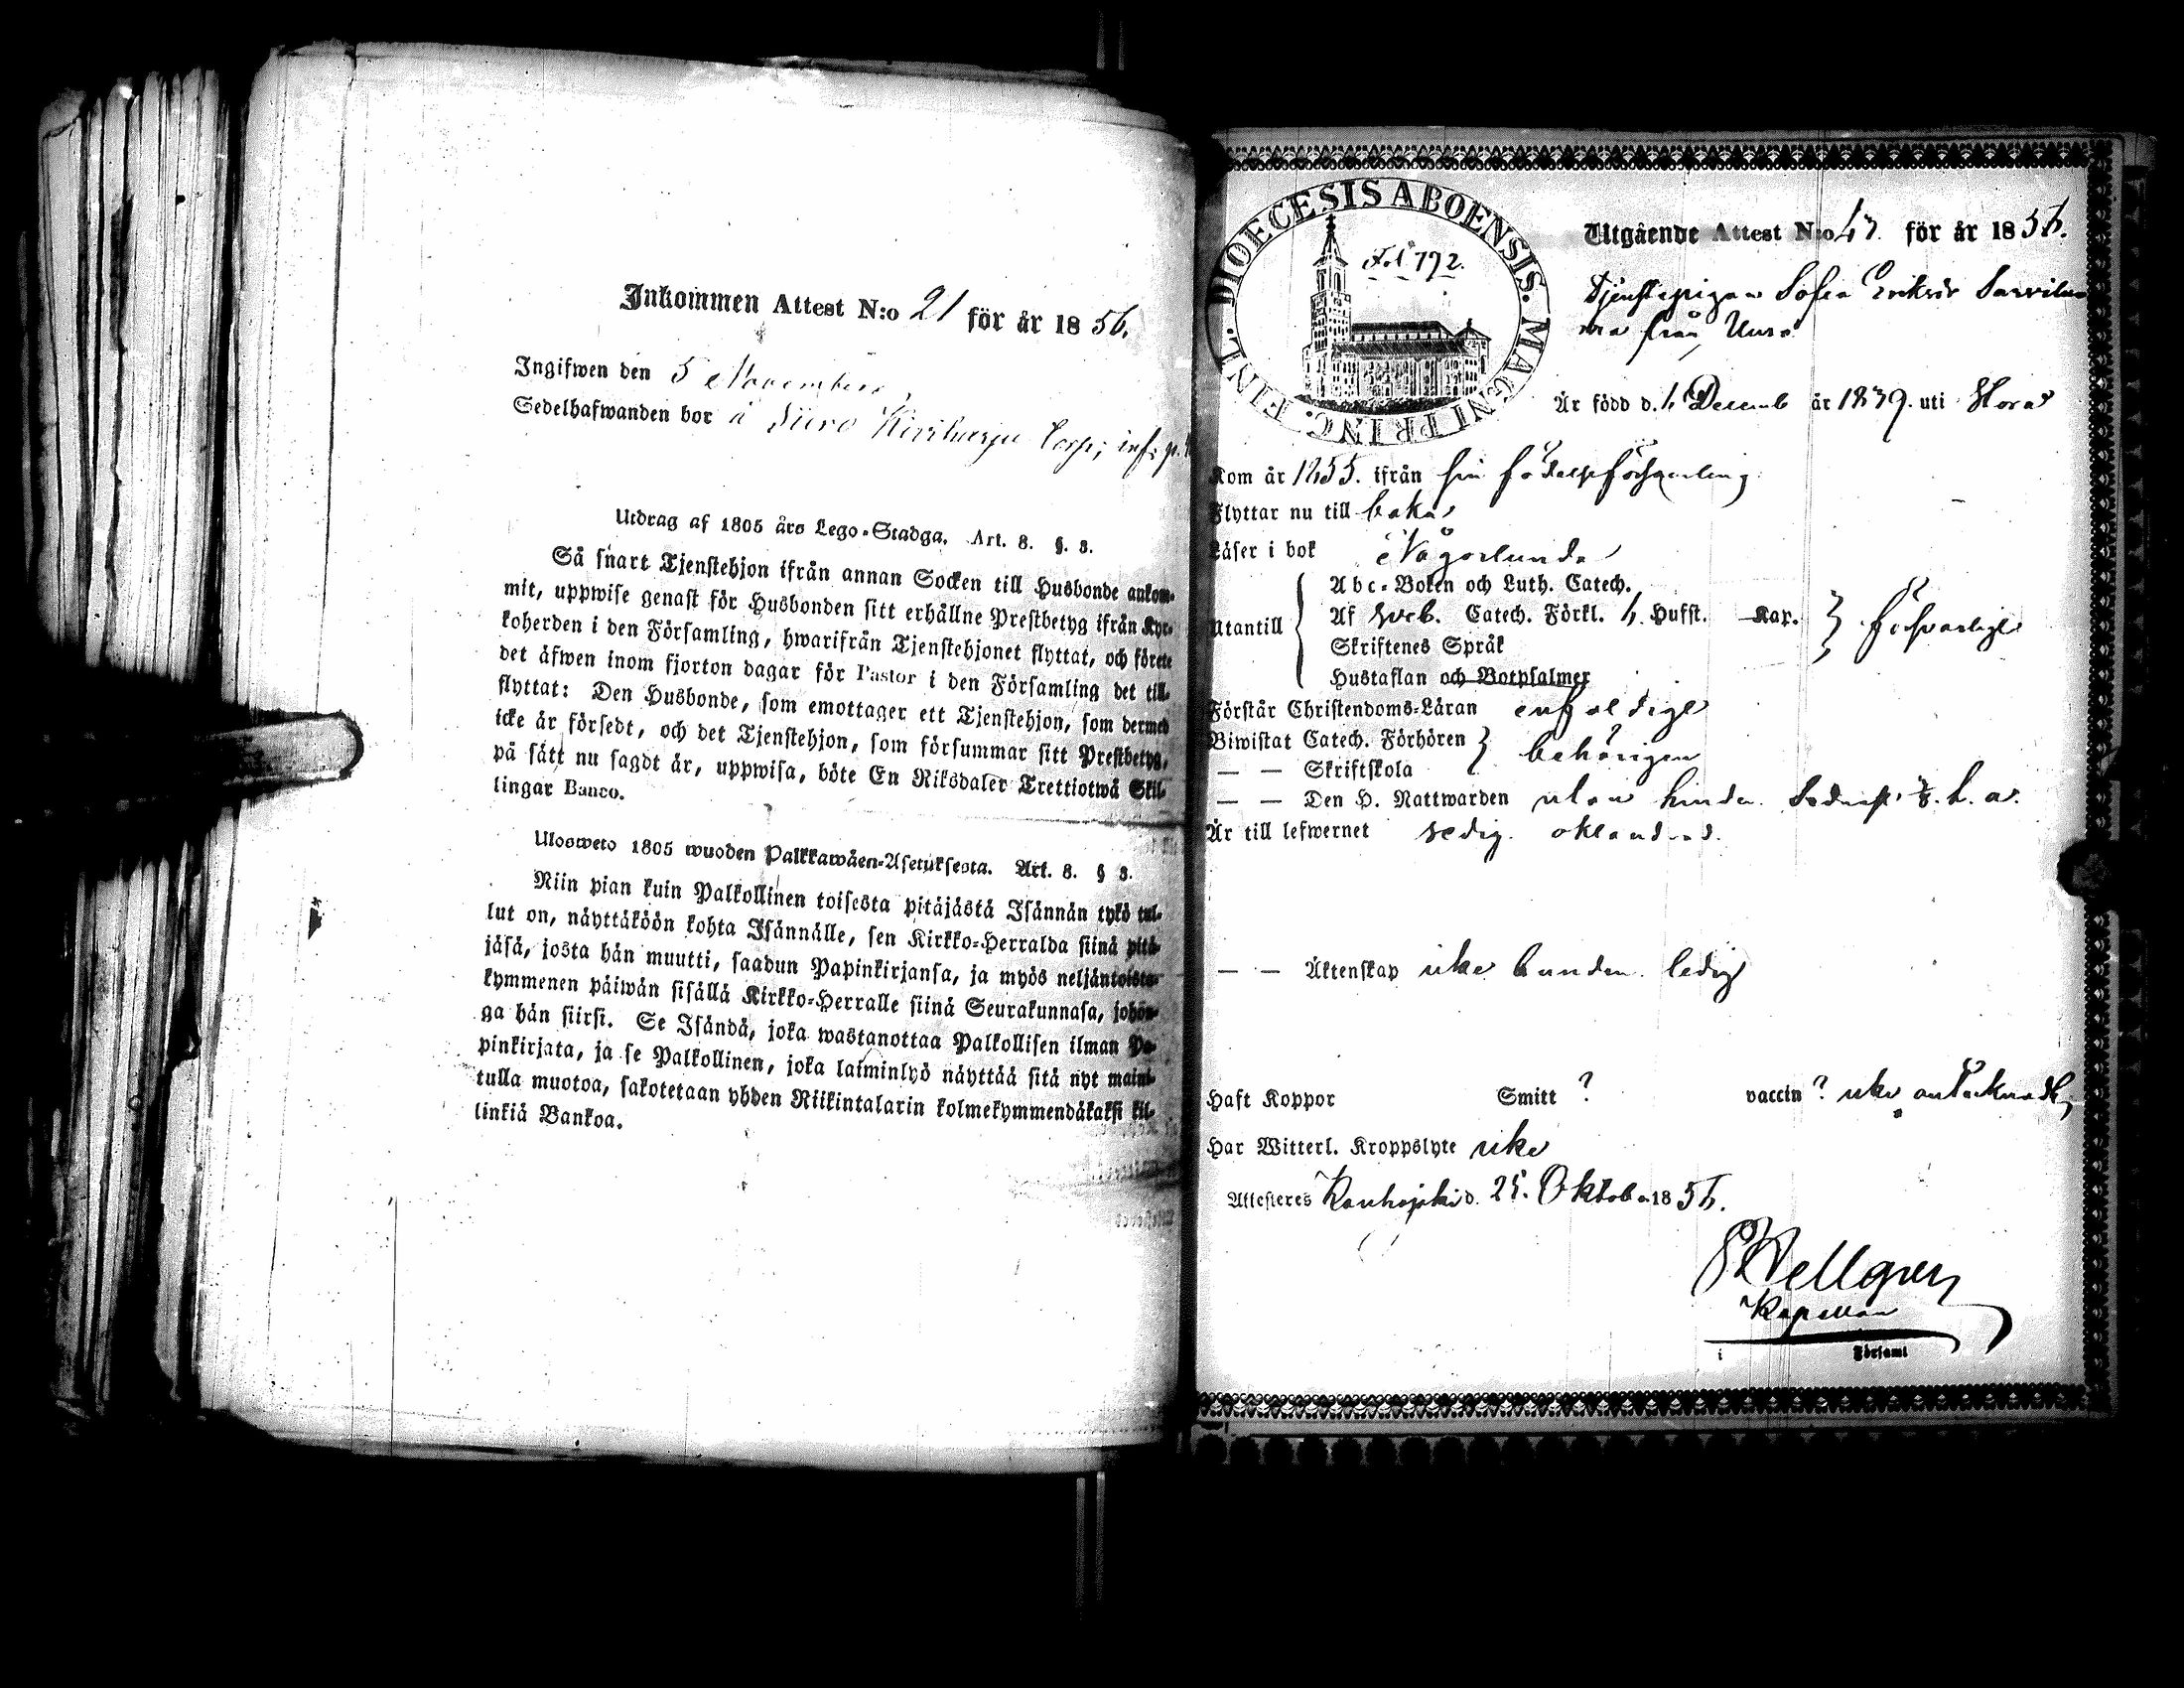 Inkommen Attest N:o 21 för år 1856.
Ingifwen den 5 November
Sedelhafwanden bor å
Utdrag af 1805 års Lego-Stadga. Art. 8. §. 3.
Så snart Tjenstehjon ifrån annan Socken till Husbonde ankom-
mit, uppwise genast för Husbonden sitt erhållne Prestbetyg ifrån Kyr-
koherden i den Församling, hwarifrån Tjenstehjonet flyttat, och förete
det äfwen inom fjorton dagar för Pastor i den Församling det till-
flyttat: Den Husbonde, som emottager ett Tjenstehjon, som dermed
icke är försedt, och det Tjenstehjon, som försummar sitt Prestbetyg,
på sätt nu sagdt är, uppwisa, böte En Riksdaler Trettiotwå Skil-
lingar Banco.
Ulosweto 1805 wuoden Palkkawäen-Asetuksesta. Art. 8. § 3.
Niin pian kuin Palkollinen toisesta pitäjästä Isännän tykö tul-
lut on, näyttäköön kohta Isännälle, sen Kirkko-Herralda siinä pitä-
jäsä, josta hän muutti, saadun Papinkirjansa, ja myös neljäntoista-
kymmenen päiwän sisällä Kirkko-Herralle siinä Seurakunnasa, johon-
ga hän siirsi. Se Isändä, joka wastanottaa Palkollisen ilman Pa-
pinkirjata, ja se Palkollinen, joka laiminlyö näyttää sitä nyt maini-
tulla muotoa, sakotetaan yhden Riikintalarin kolmekymmendäkaksi kil-
linkiä Bankoa.
DIOECESIS ABOENSIS. MAGNI PRINC. FINL.
Fol 192.
Utgående Attest N:o 47. för år 1856.
Tjenstepigan Sofia Eriksdr
från
Är född d. 6 Decemb år 1839. uti
Kom år 1855. ifrån sin födelseförsamling
Flyttar nu till bakas
Läser i bok Någorlunda
Abc-Boken och Luth. Catech.
Utantill Af Sveb. Catech. Förkl. 6. Hufst. Kap. försvarligt
Skriftenes Språk
Hustaflan och Botpsalmer
Förstår Christendoms-Läran enfaldigt
Biwistat Catech. Förhören behörigen
— — Skriftskola
— — Den H. Nattwarden utan hinder
Är till lefwernet sedig. oklandrad.
— — Äktenskap icke bunden. ledig
Haft Koppor Smitt ? vaccin ? icke antecknadt
Har Witterl. Kroppslyte icke
Attesteres d. 25. Oktober 1856.
Kapellan
i Församl